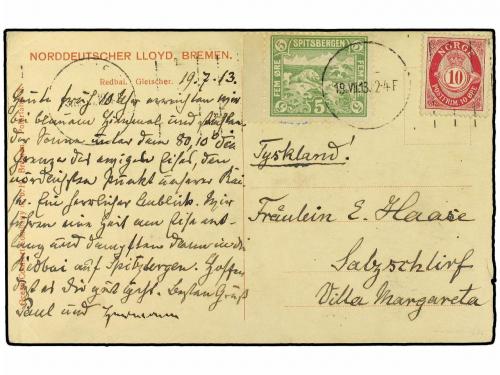 NORDDEUTSCHER LLOYD, BREMEN.
Redbai. Gletscher.
19.7.13.
Heute früh 10 Uhr erreichten wir
bei blauem Himmel und
der Sonne unter dem 80,10° die
Grenze des ewigen Eises, den
nördlichsten Punkt unserer Rei-
se. Ein herrlicher Anblick. Wir
fuhren eine Zeit am Eise ent-
lang und dampften dann in die
Redbai auf Spitzbergen. Hoffen
es Dir gut geht. Besten Gruß
Paul und Hermann
SPITSBERGEN
FEM ØRE
FEM
5
5
19.VII.13. 2-4 F
NORGE
10
POSTFRIM 10 ØRE
Tyskland!
Fräulein E. Haase
Salzschlirf
Villa Margareta